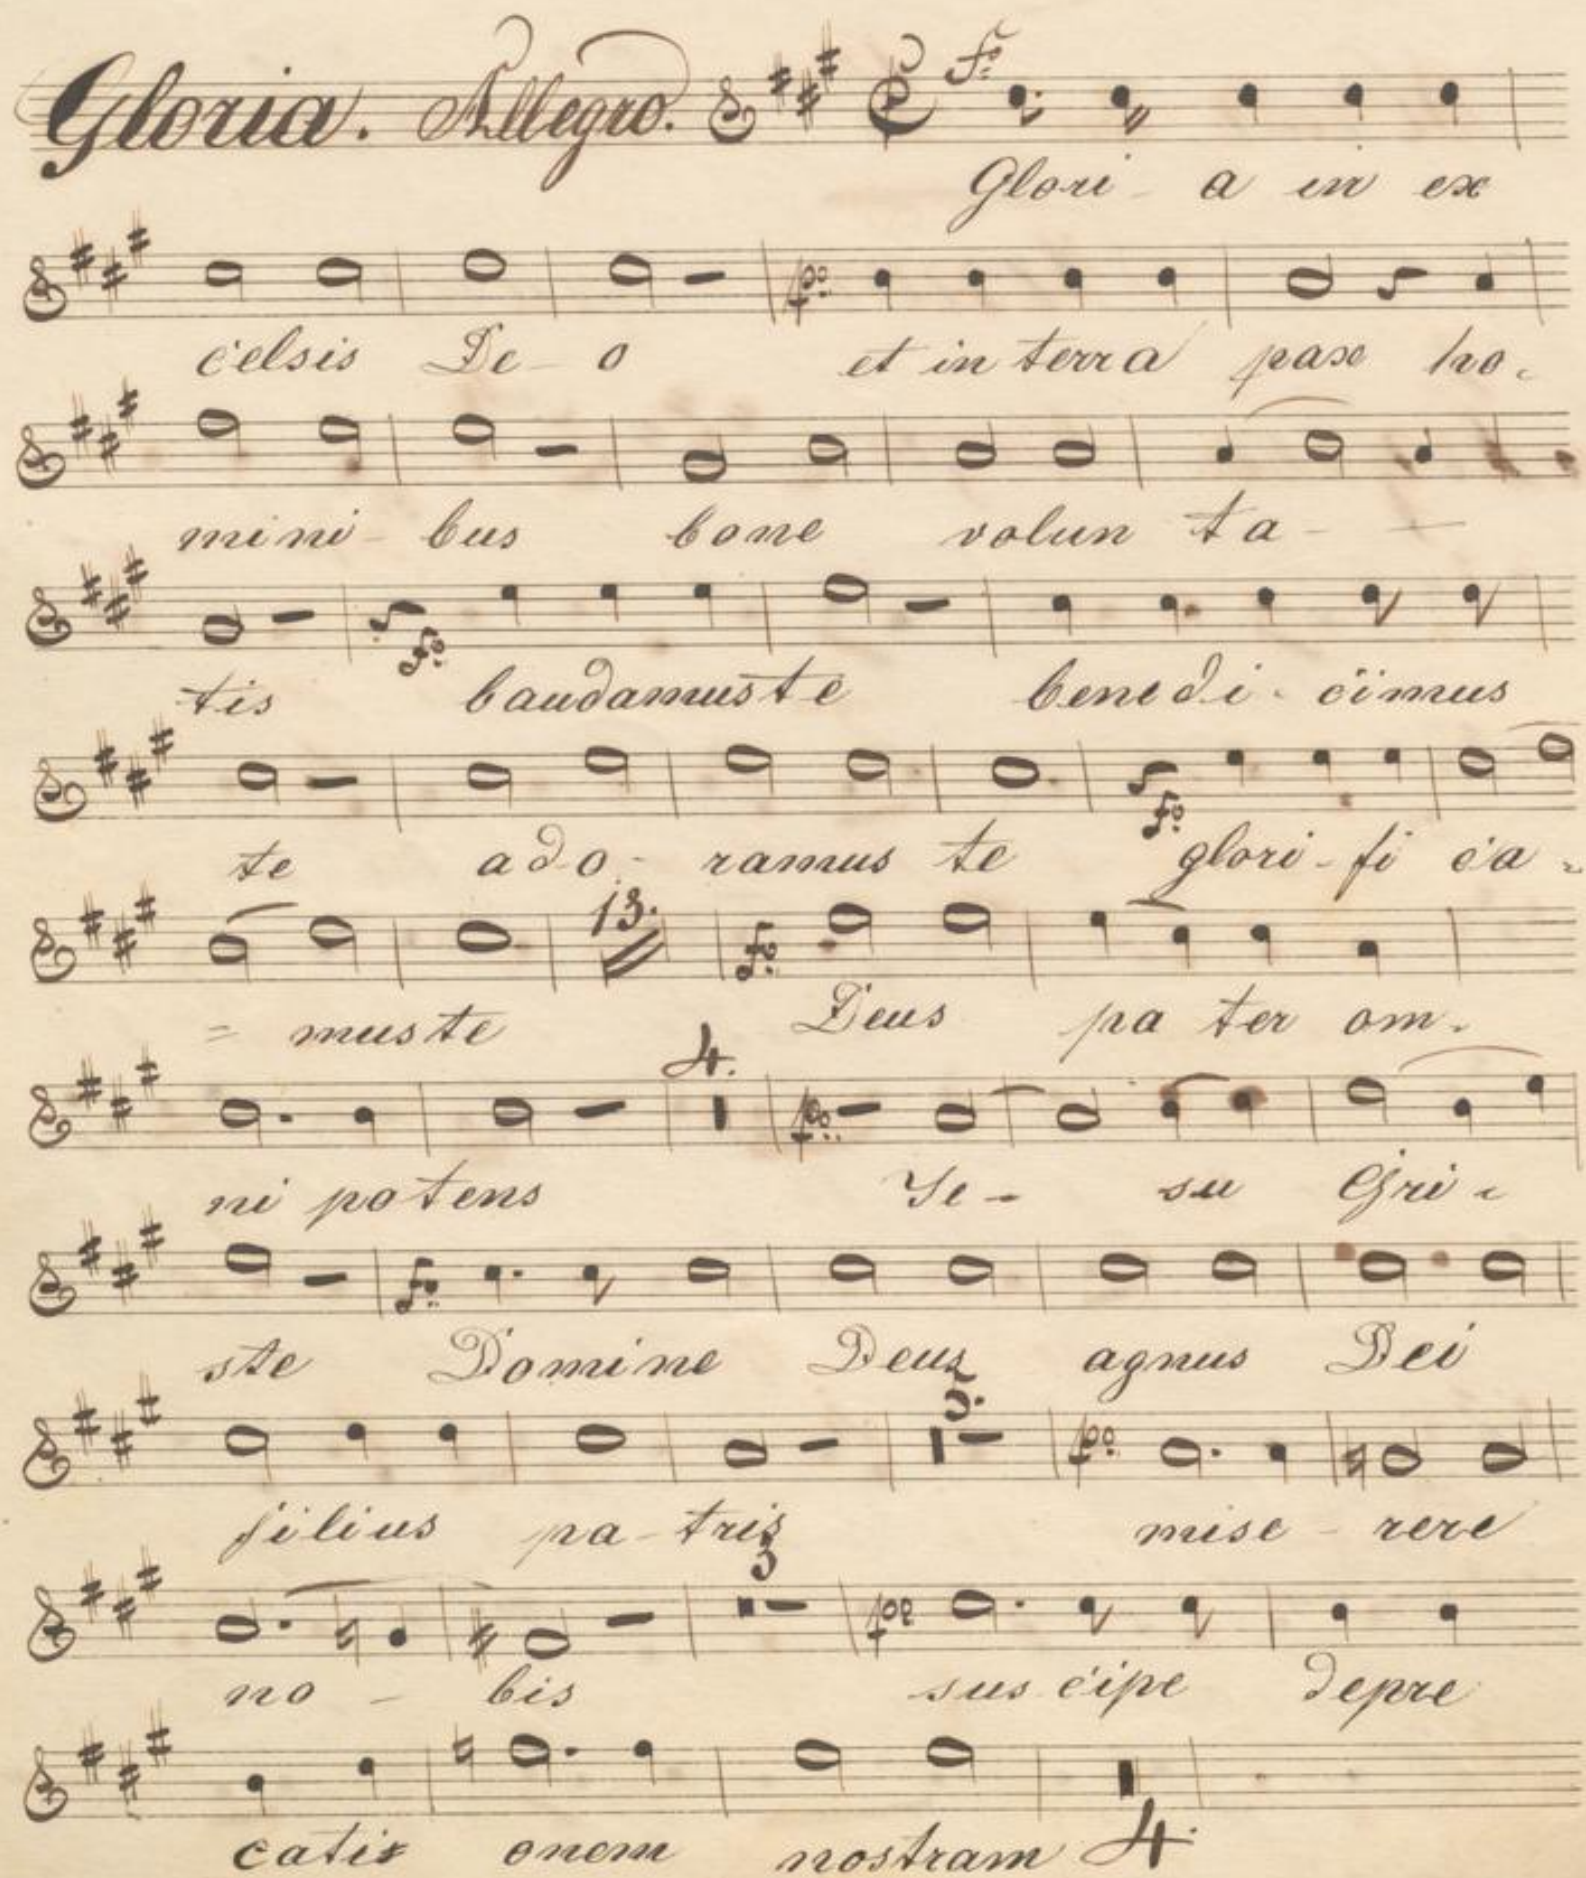 Gloria. Allegro. fo
Glori - a in ex
po:
celsis De - o et in terra pax ho.
mini - bus bone volun ta -
fo:
tis laudamus te benedi - cimus
fo:
te ado - ramus te glori - fi ca -
13. fo:
= mus te Deus pa ter om.
4. po:
ni potens Je - su Chri -
fo:
ste Domine Deus agnus Dei
5. po:
filius pa - tris mise - rere
3 po
no - bis sus cipe depre
catio onem nostram 4.